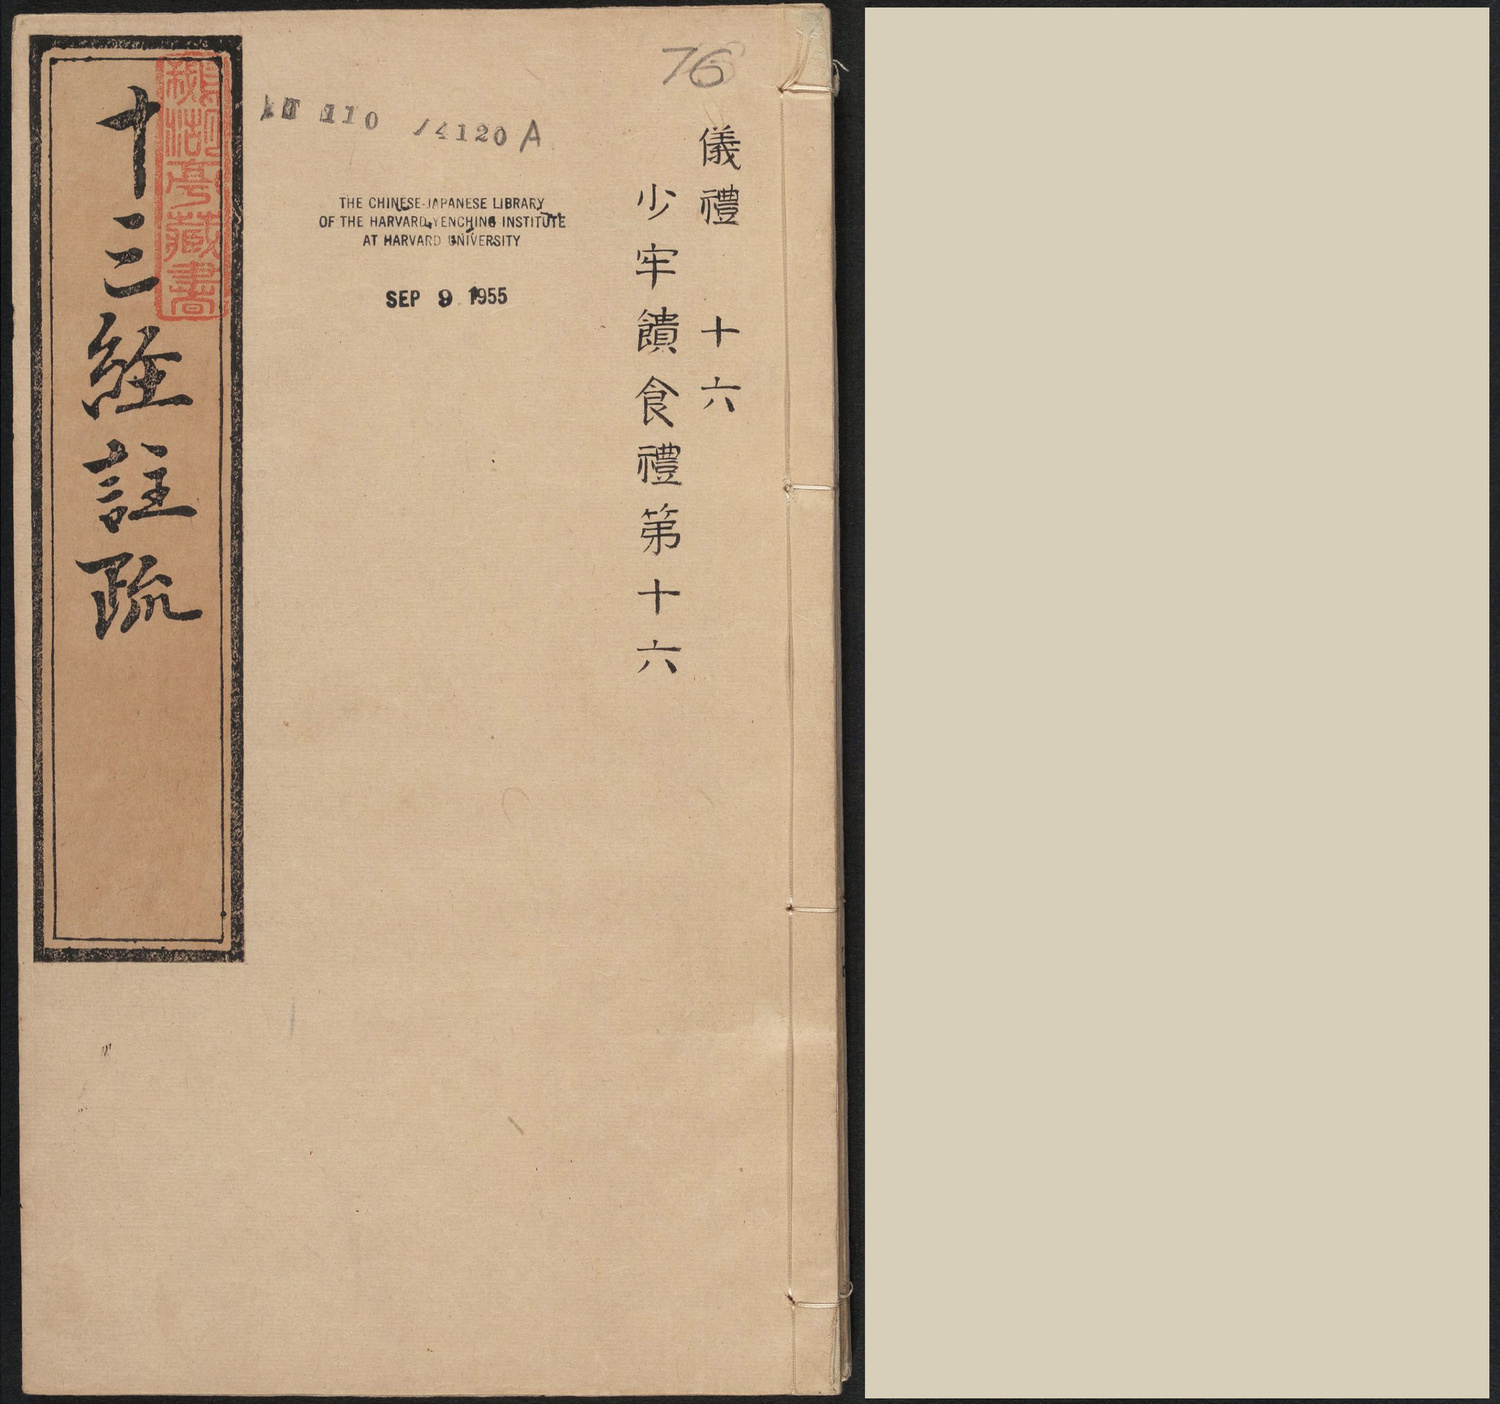 76
儀禮 十六
少牢饋食禮第十六
110 /4120 A
THE CHINESE-JAPANESE LIBRARY
OF THE HARVARD-YENCHING INSTITUTE
AT HARVARD UNIVERSITY
SEP 9 1955
十三經註疏
藏書